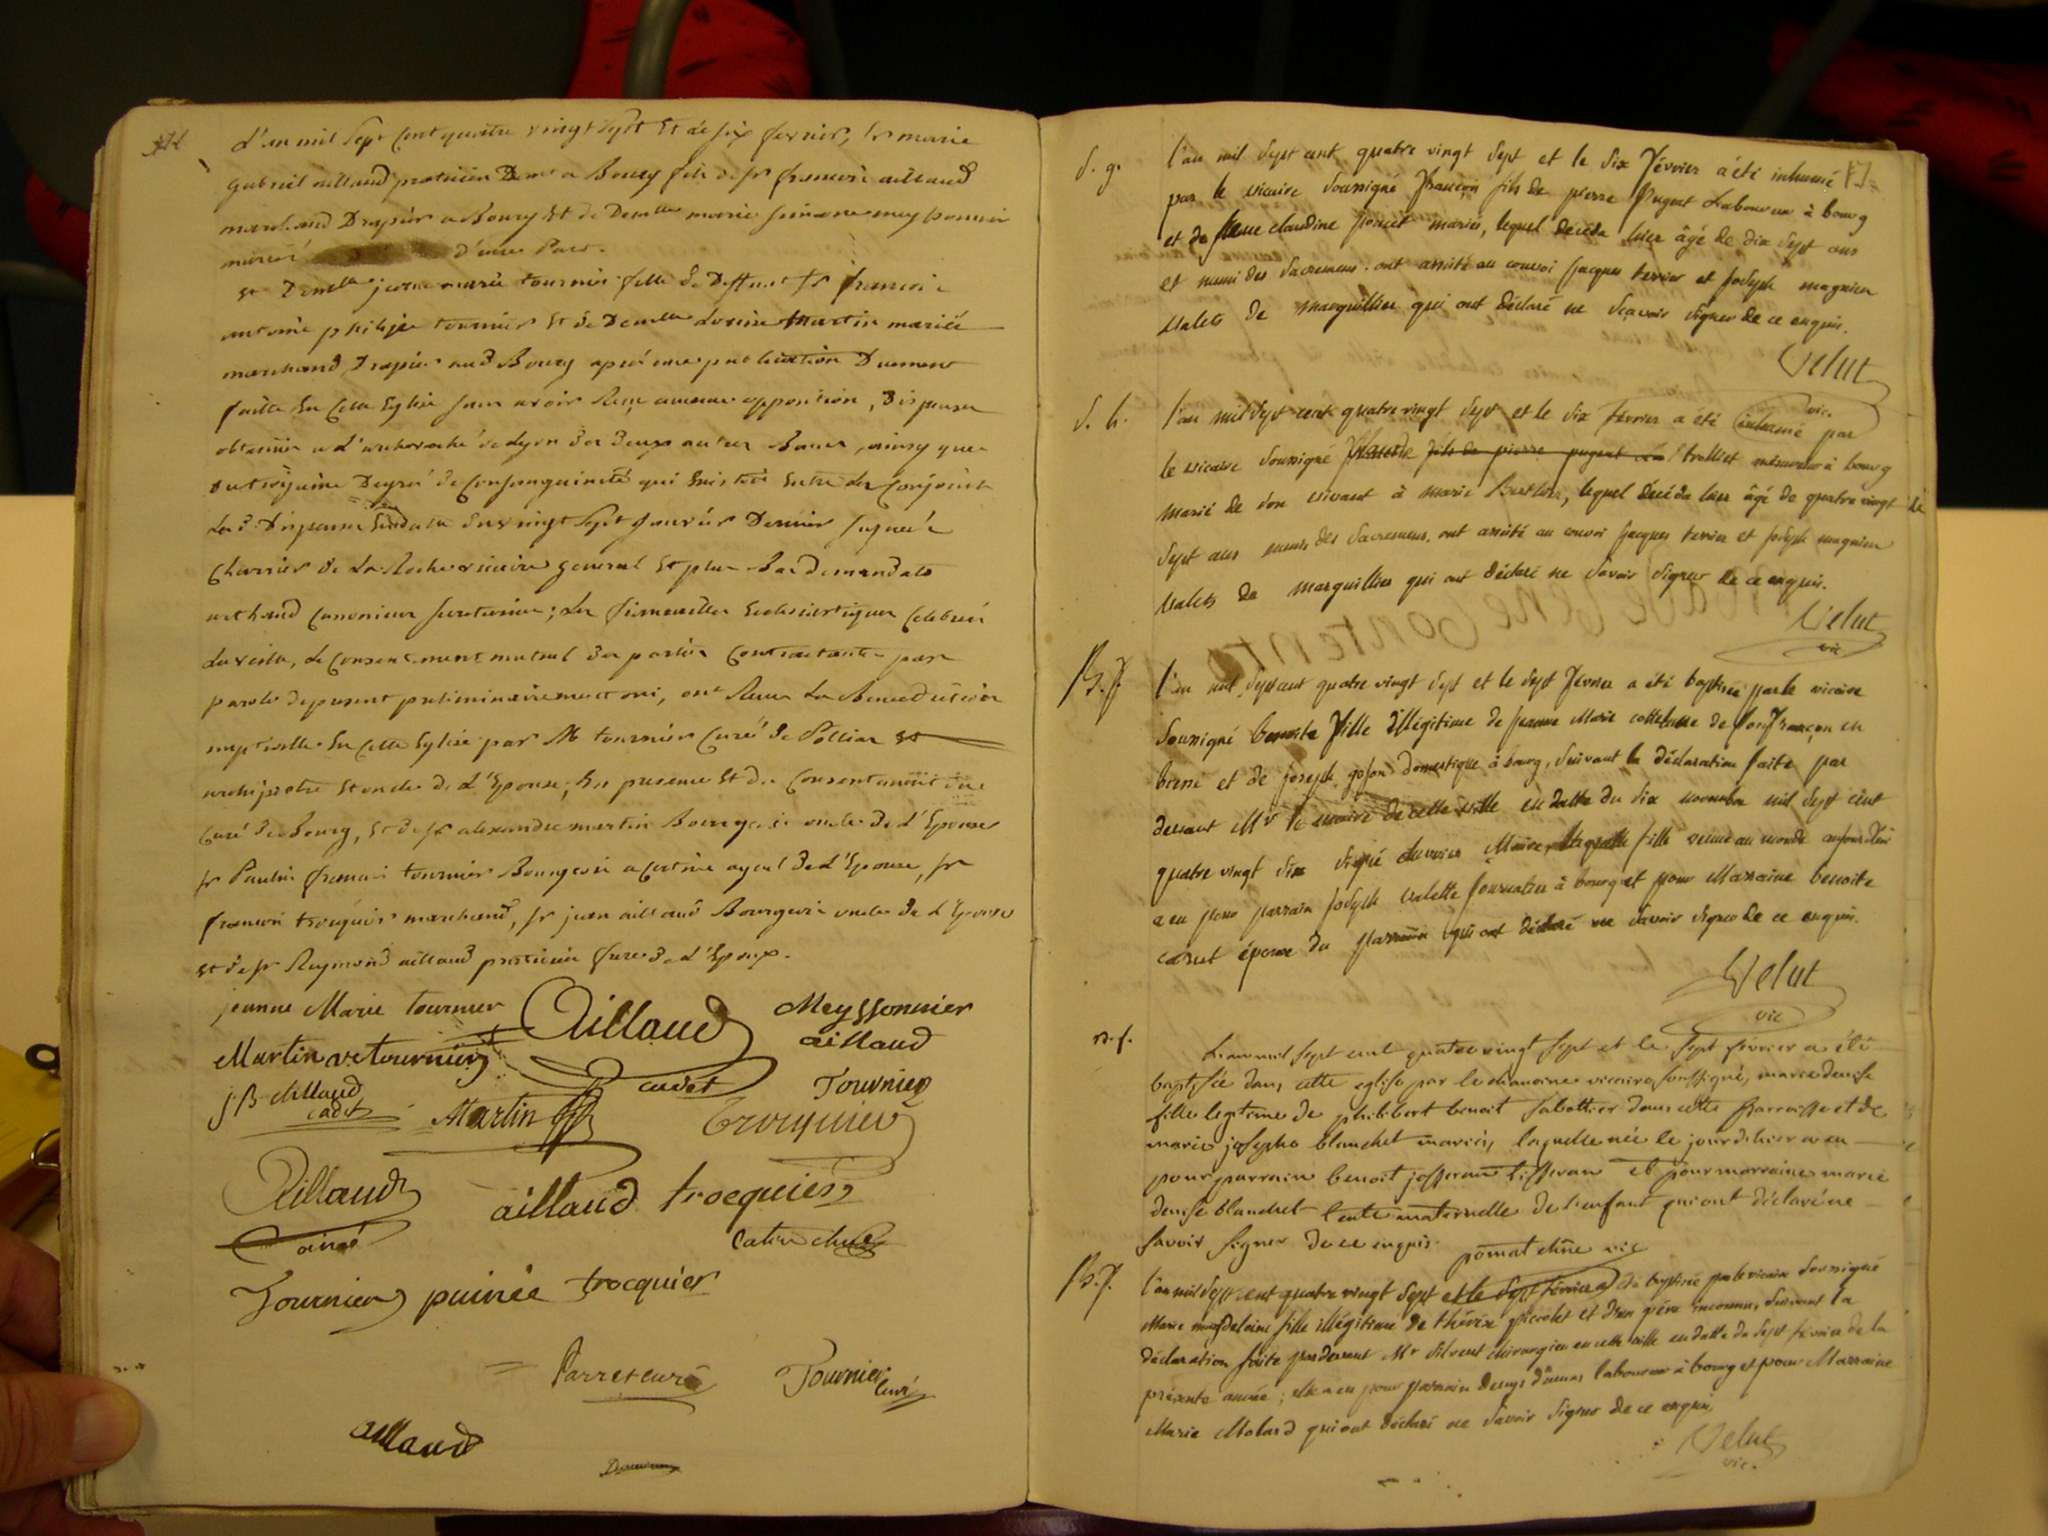 L'an mil Sept Cent quatre vingt Sept Et le six fevrier, Sr marie
gabriel aillaud praticien Demt a Bourg fils de Sr francois aillaud
marchand Drapier a Bourg Et de Demelle marie
mariés d'une Part.
Et Demelle jeanne marie tournier fille de Deffunt Sr francois
antoine philipe tournier Et de Demelle Louise Martin mariés
marchand Drapier aud Bourg après une publication Duement
faitte En Cette Eglise sans avoir Reçu aucune opposition, Dispense
obtenue a L'archeveché de Lyon des deux autres Bancs, ainsy que
du troisieme Degré de Consanguinité qui Existoit Entre Les Conjoints
Lad. Dispense En datte du vingt Sept janvier Dernier Signée
Charrier de La Roche vicaire general Et plus Bas de mandato
arthaud Canonicus Secretarius; Les fiancailles Ecclesiastiques Celebrées
La veille, Le Consentement mutuel des parties Contractantes par
parole de present preliminairement oui, ont Recu La Benediction
nuptialle En Cette Eglise par Mr tournier Curé de Polliat Et
archiprêtre Et oncle de L'Epouse; En presence Et du Consentement du
Curé de Bourg, Et de Sr alexandre martin Bourgeois oncle de L'Epouse
Sr Paulin francois tournier Bourgeois ayeul de L'Epouse, Sr
francois trocquier marchand, Sr jean aillaud Bourgeois oncle de L'Epoux
Et de Sr Raymond aillaud praticien frere de L'Epoux.
jeanne Marie tournier Aillaud Meyssonnier
aillaud
Martin ve tournier
cadet Tournier
J B Aillaud
cadet Martin Trocquier
Aillaud aillaud trocquier
ainé
Tournier puinée trocquier
Parret curé Tournier
curé
aillaud
S. g. l'an mil sept cent quatre vingt sept et le six Février a été inhumé
par le vicaire soussigné François fils de pierre Puget Laboureur à bourg
et de feue claudine poncet mariés, lequel décéda hier âgé de dix sept ans
et muni des sacremens. ont assisté au convoi jacques terrier et joseph magnien
valets de marguillier qui ont déclaré ne sçavoir signer de ce enquis.
Velut
vic.
S. h. l'an mil sept cent quatre vingt sept et le six Fevrier a été inhumé par
le vicaire soussigné fils de pierre puget à bourg
marié de son vivant à marie Berthier, lequel décéda hier âgé de quatre vingt
sept ans muni des Sacremens. ont assisté au convoi jacques terrier et joseph magnien
valets de marguillier qui ont déclaré ne savoir signer de ce enquis.
Velut
vic
B. f. l'an mil sept cent quatre vingt sept et le sept Février a été baptisée par le vicaire
soussigné benoite Fille illégitime de jeanne Marie de Confrançon en
bresse et de joseph gojon domestique à bourg, suivant la déclaration faite par
devant Mr le maire de cette ville en datte du dix novembre mil sept cent
quatre vingt six signé Maire, laquelle fille venue au monde aujourd'hui
a eu pour parrain joseph valette journalier à bourg et pour Marraine benoite
épouse du parrain qui ont déclaré ne savoir signer de ce enquis.
Velut
vic
B. f. L'an mil sept cent quatre vingt sept et le sept février a été
baptisée dans cette eglise par le chanoine vicaire soussigné, marie denise
fille legitime de philibert benoit sabottier dans cette parroisse et de
marie josephe blanchet mariés, laquelle née le jour d'hier a eu
pour parrain benoit jofferan tisseran et pour marraine marie
denise blanchet tente maternelle de l'enfant qui ont déclaré ne
savoir signer de ce enquis. pomat chne vic
B. f. l'an mil sept cent quatre vingt sept et le sept février a été baptisée par le vicaire soussigné
Marie magdelaine fille illégitime de thérèse picrolet et d'un père inconnu, suivant la
déclaration faite par devant Mr silvent chirurgien en cette ville en datte du sept février de la
présente année; elle a eu pour parrain denys laboureur à bourg et pour Marraine
Marie Molard qui ont déclaré ne savoir signer de ce enquis.
Velut
vic.